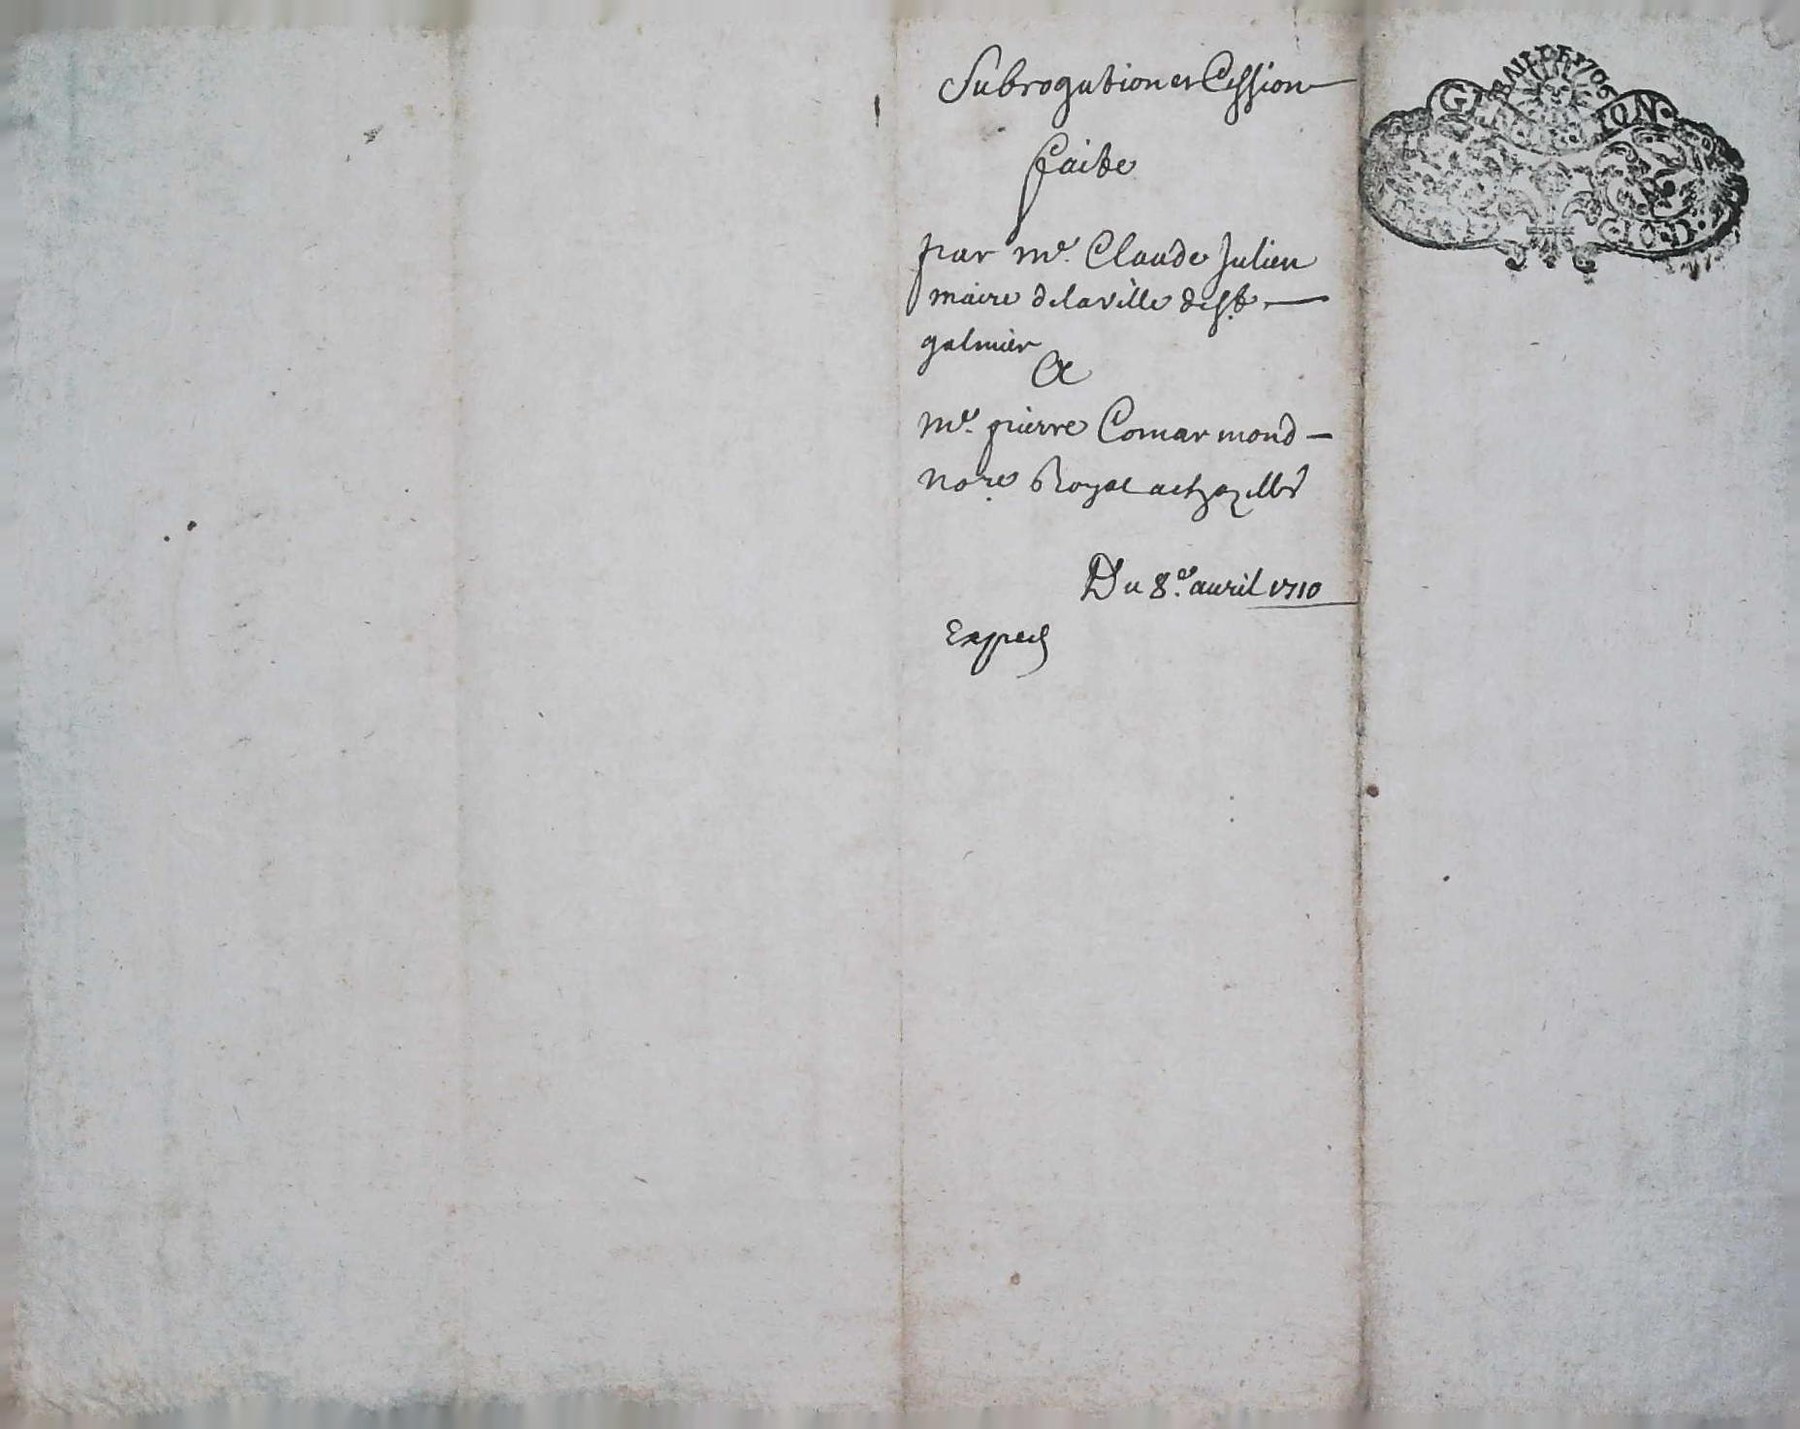 Subrogation et Cession
faite
par me. Claude Julien
maire de la ville de St.
galmier
A
Me. pierre Comarmond
nore. Royal a chazelles
Du 8e. auril 1710
Exped
BAIL DE 1706
G ION